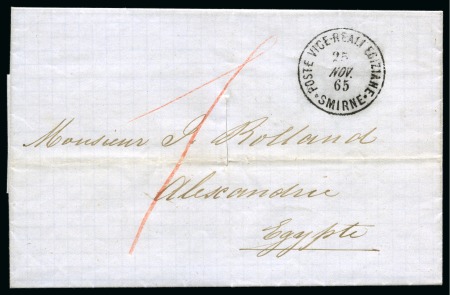 POSTE VICE-REALI EGIZIANE
25
NOV.
65
SMIRNE
Monsieur J. Rolland
Alexandrie
Egypte